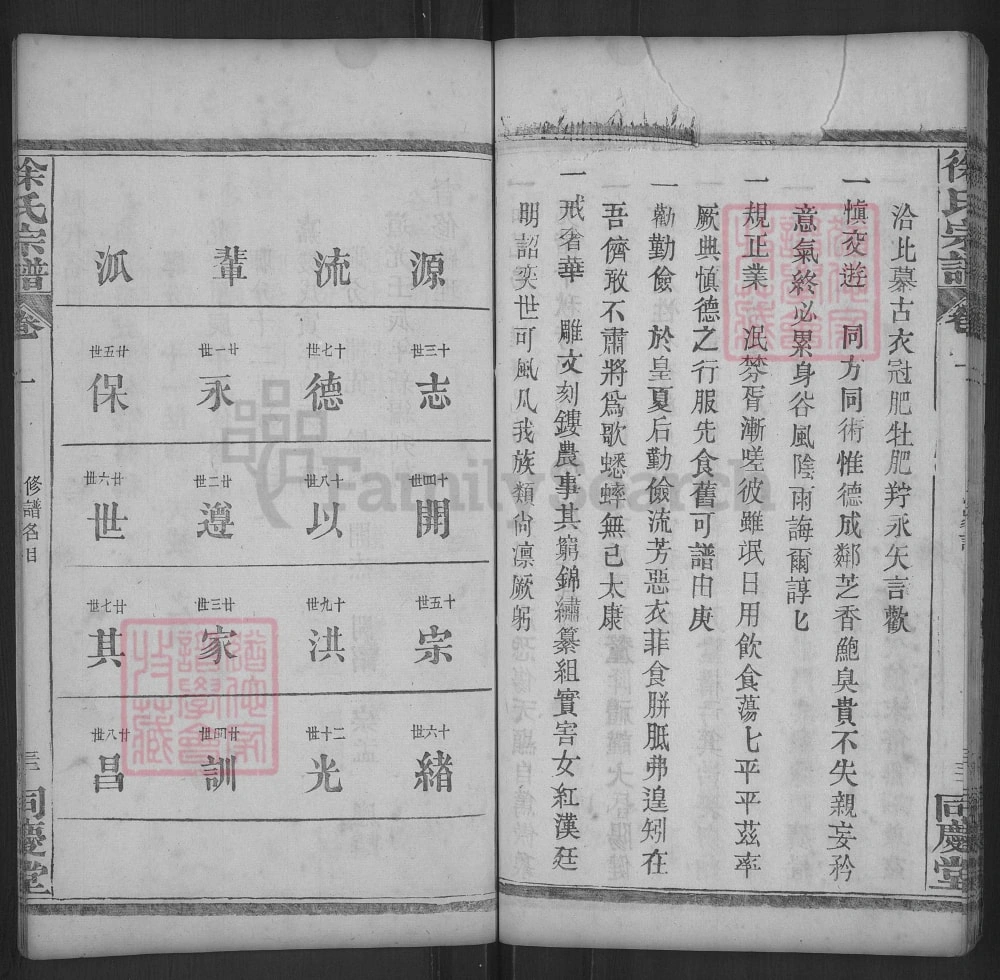 徐氏宗譜
卷一
三三
同慶堂
洽比慕古衣冠肥牡肥羜永矢言歡
一慎交遊 同方同術惟德成鄰芝香鮑臭貴不失親妄矜
意氣終必累身谷風陰雨誨爾諄匕
一規正業 泯棼胥漸嗟彼雖氓日用飲食蕩匕平平茲率
厥典慎德之行服先食舊可譜由庚
一勸勤儉 於皇夏后勤儉流芳惡衣菲食胼胝弗遑矧在
吾儕敢不肅將爲歌蟋蟀無已太康
一戒奢華 雕文刻鏤農事其窮錦繡纂組實害女紅漢廷
明詔奕世可風凡我族類尙凛厥躬
源流輩派
十三世 志
十七世 德
廿一世 永
廿五世 保
十四世 開
十八世 以
廿二世 遵
廿六世 世
十五世 宗
十九世 洪
廿三世 家
廿七世 其
十六世 緒
二十世 光
廿四世 訓
廿八世 昌
徐氏宗譜
卷一
修譜名目
三三
同慶堂
FamilySearch